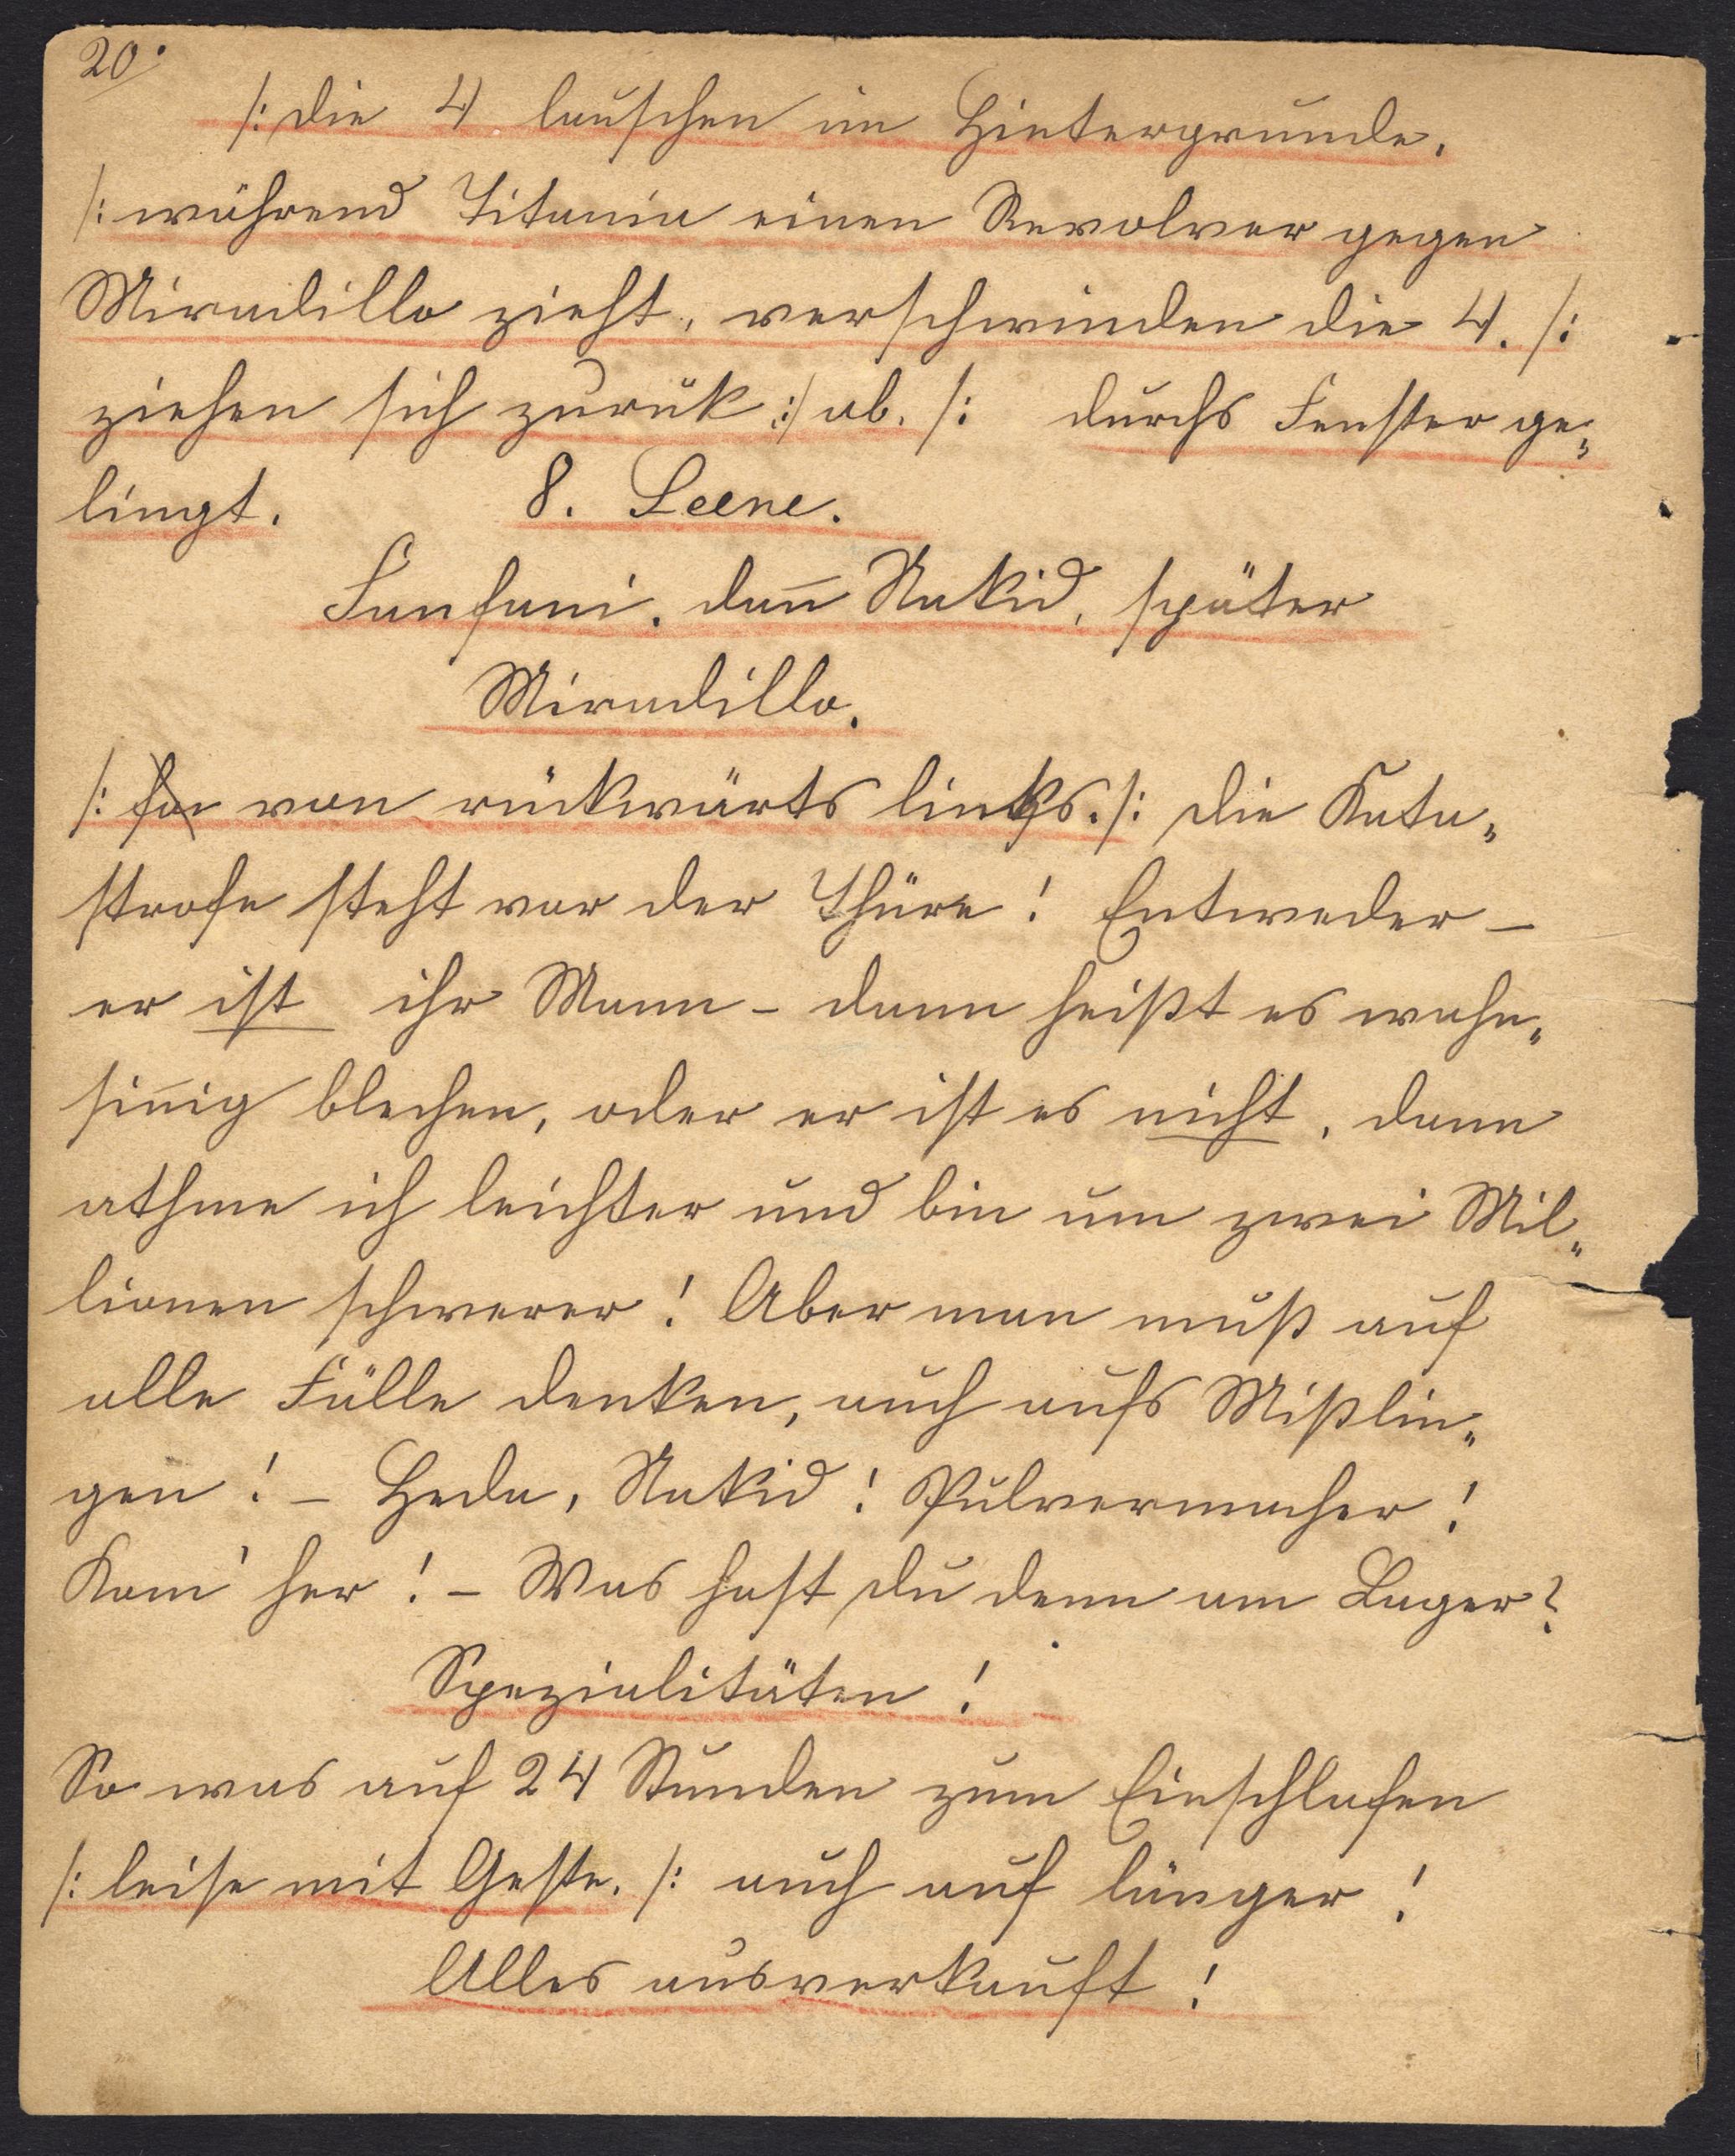 20.
/: die 4 lauschen im Hintergrunde.
/: während Titania einen Revolver gegen
Miradillo zieht, verschwinden die 4. /:
ziehen sich zurük :/ ab. /: durchs Fenster ge„
lingt. 8. Scene.
Fanfani. dan̄ Nakid, später
Miradillo.
/: von rückwärts links. /: Die Kata„
strofe steht vor der Thüre! Entweder –
er ist ihr Mann – dann heißt es wahn„
sin̄ig blechen, oder er ist es nicht, dann
athme ich leichter und bin um zwei Mil„
lionen schwerer! Aber man muß auf
alle Fälle denken, auch aufs Mißlin„
gen! – Heda, Nakid! Pulvermacher!
Kom̄' her! – Was hast du denn am Lager?
Spezialitäten!
So was auf 24 Stunden zum Einschlafen
/: leise mit Geste. /: auch auf länger!
Alles ausverkauft!